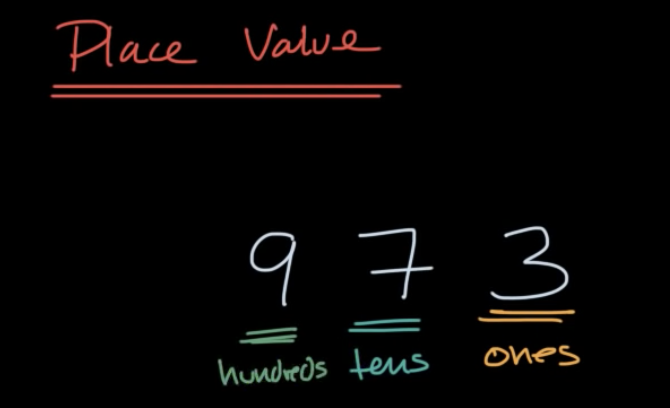 Place Value
9 7 3
hundreds tens ones